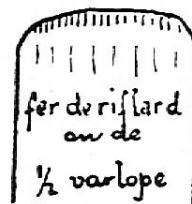 fer de riflard
ou de
½ varlope